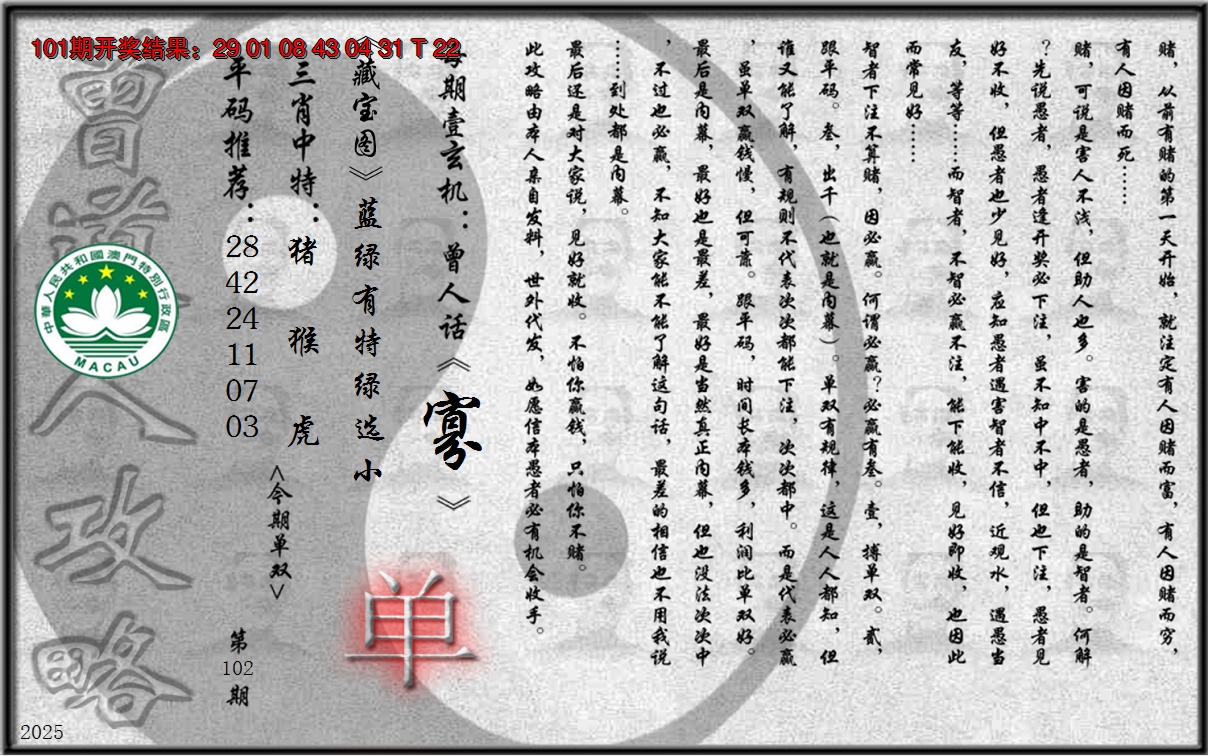 101期开奖结果：29 01 08 43 04 31 T 22
赌，从前有赌的第一天开始，就注定有人因赌而富，有人因赌而穷，
有人因赌而死……
赌，可说是害人不浅，但助人也多。害的是愚者，助的是智者。何解
？先说愚者，愚者逢开奖必下注，虽不知中不中，但也下注，愚者见
好不收，但愚者也少见好，应知愚者遇害智者不信，近观水，遇愚当
友，等等……而智者，不智必赢不注，能下能收，见好即收，也因此
而常见好……
智者下注不算赌，因必赢。何谓必赢？必赢有叁。壹，搏单双。贰，
跟平码。叁，出千（也就是内幕）。单双有规律，这是人人都知，但
谁又能了解，有规则不代表次次都能下注，次次都中。而是代表必赢
，虽单双赢钱慢，但可靠。跟平码，时间长本钱多，利润比单双好。
最后是内幕，最好也是最差，最好是当然真正内幕，但也没法次次中
，不过也必赢，不知大家能不能了解这句话，最差的相信也不用我说
……到处都是内幕。
最后还是对大家说，见好就收。不怕你赢钱，只怕你不赌。
此攻略由本人亲自发料，世外代发，如愿信本愚者必有机会收手。
每期壹玄机：曾人话《寡》
《藏宝图》蓝绿有特绿选小
三肖中特：猪 猴 虎
平码推荐：28 42 24 11 07 03
<今期单双>
单
第102期
曾道人攻略
中華人民共和國澳門特別行政區
MACAU
2025